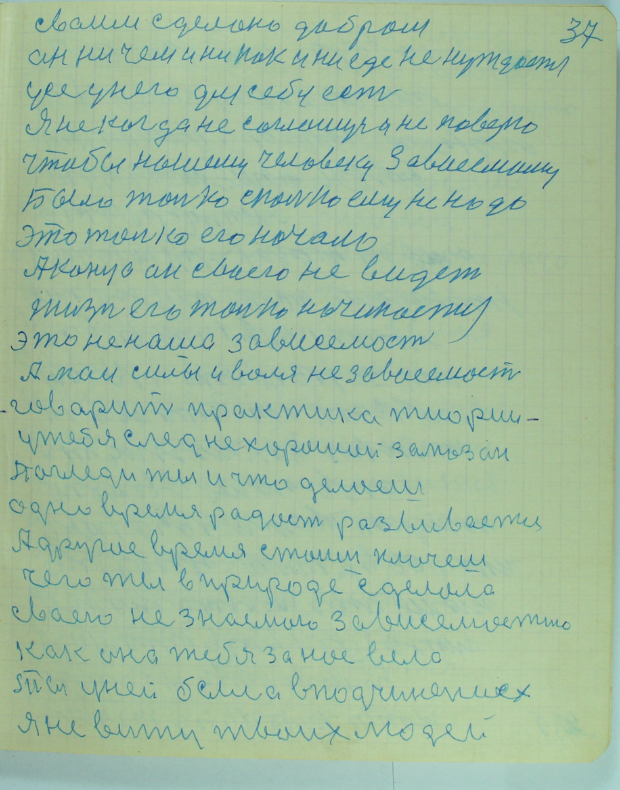 37
сваим сделоно добром
он ни чем и ни как и ни где не нуждоется
усе у него для себя ест
Я не когда не соглошуся не поверю
чтобы нашему человеку зависемому
Было толко столко ему не надо
Это толко его начало
А конца он своего не видет
жизн его толко начинаетця
это не наша зависемост
А маи силы и воля не зависемост
говарит практика тиории
у тебя след не хороший замазан
погледи ты и что делоеш
одно время радост развиваетця
А другое время стоиш плочеш
чего ты в природе сделала
сваего не знаемого зависемостю
как она тебя заноевела
Ты у ней была в подчинениех
Я не вижу твоих людей